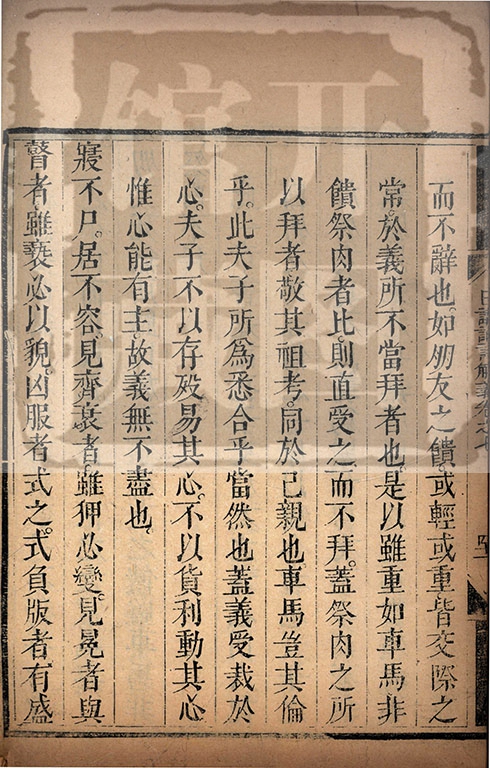 而不辭也。如朋友之饋。或輕或重皆交際之
常。於義所不當拜者也。是以雖重如車馬非
饋祭肉者比。則直受之而不拜。蓋祭肉之所
以拜者敬其祖考。同於己親也。車馬豈其倫
乎。此夫子所為悉合乎當然也蓋義受裁於
心。夫子不以存歿易其心。不以貨利動其心
惟心能有主。故義無不盡也。
寢不尸。居不容。見齊衰者。雖狎必變。見冕者與
瞽者。雖褻必以貌。凶服者式之。式負版者有盛
日講四書解義卷之七